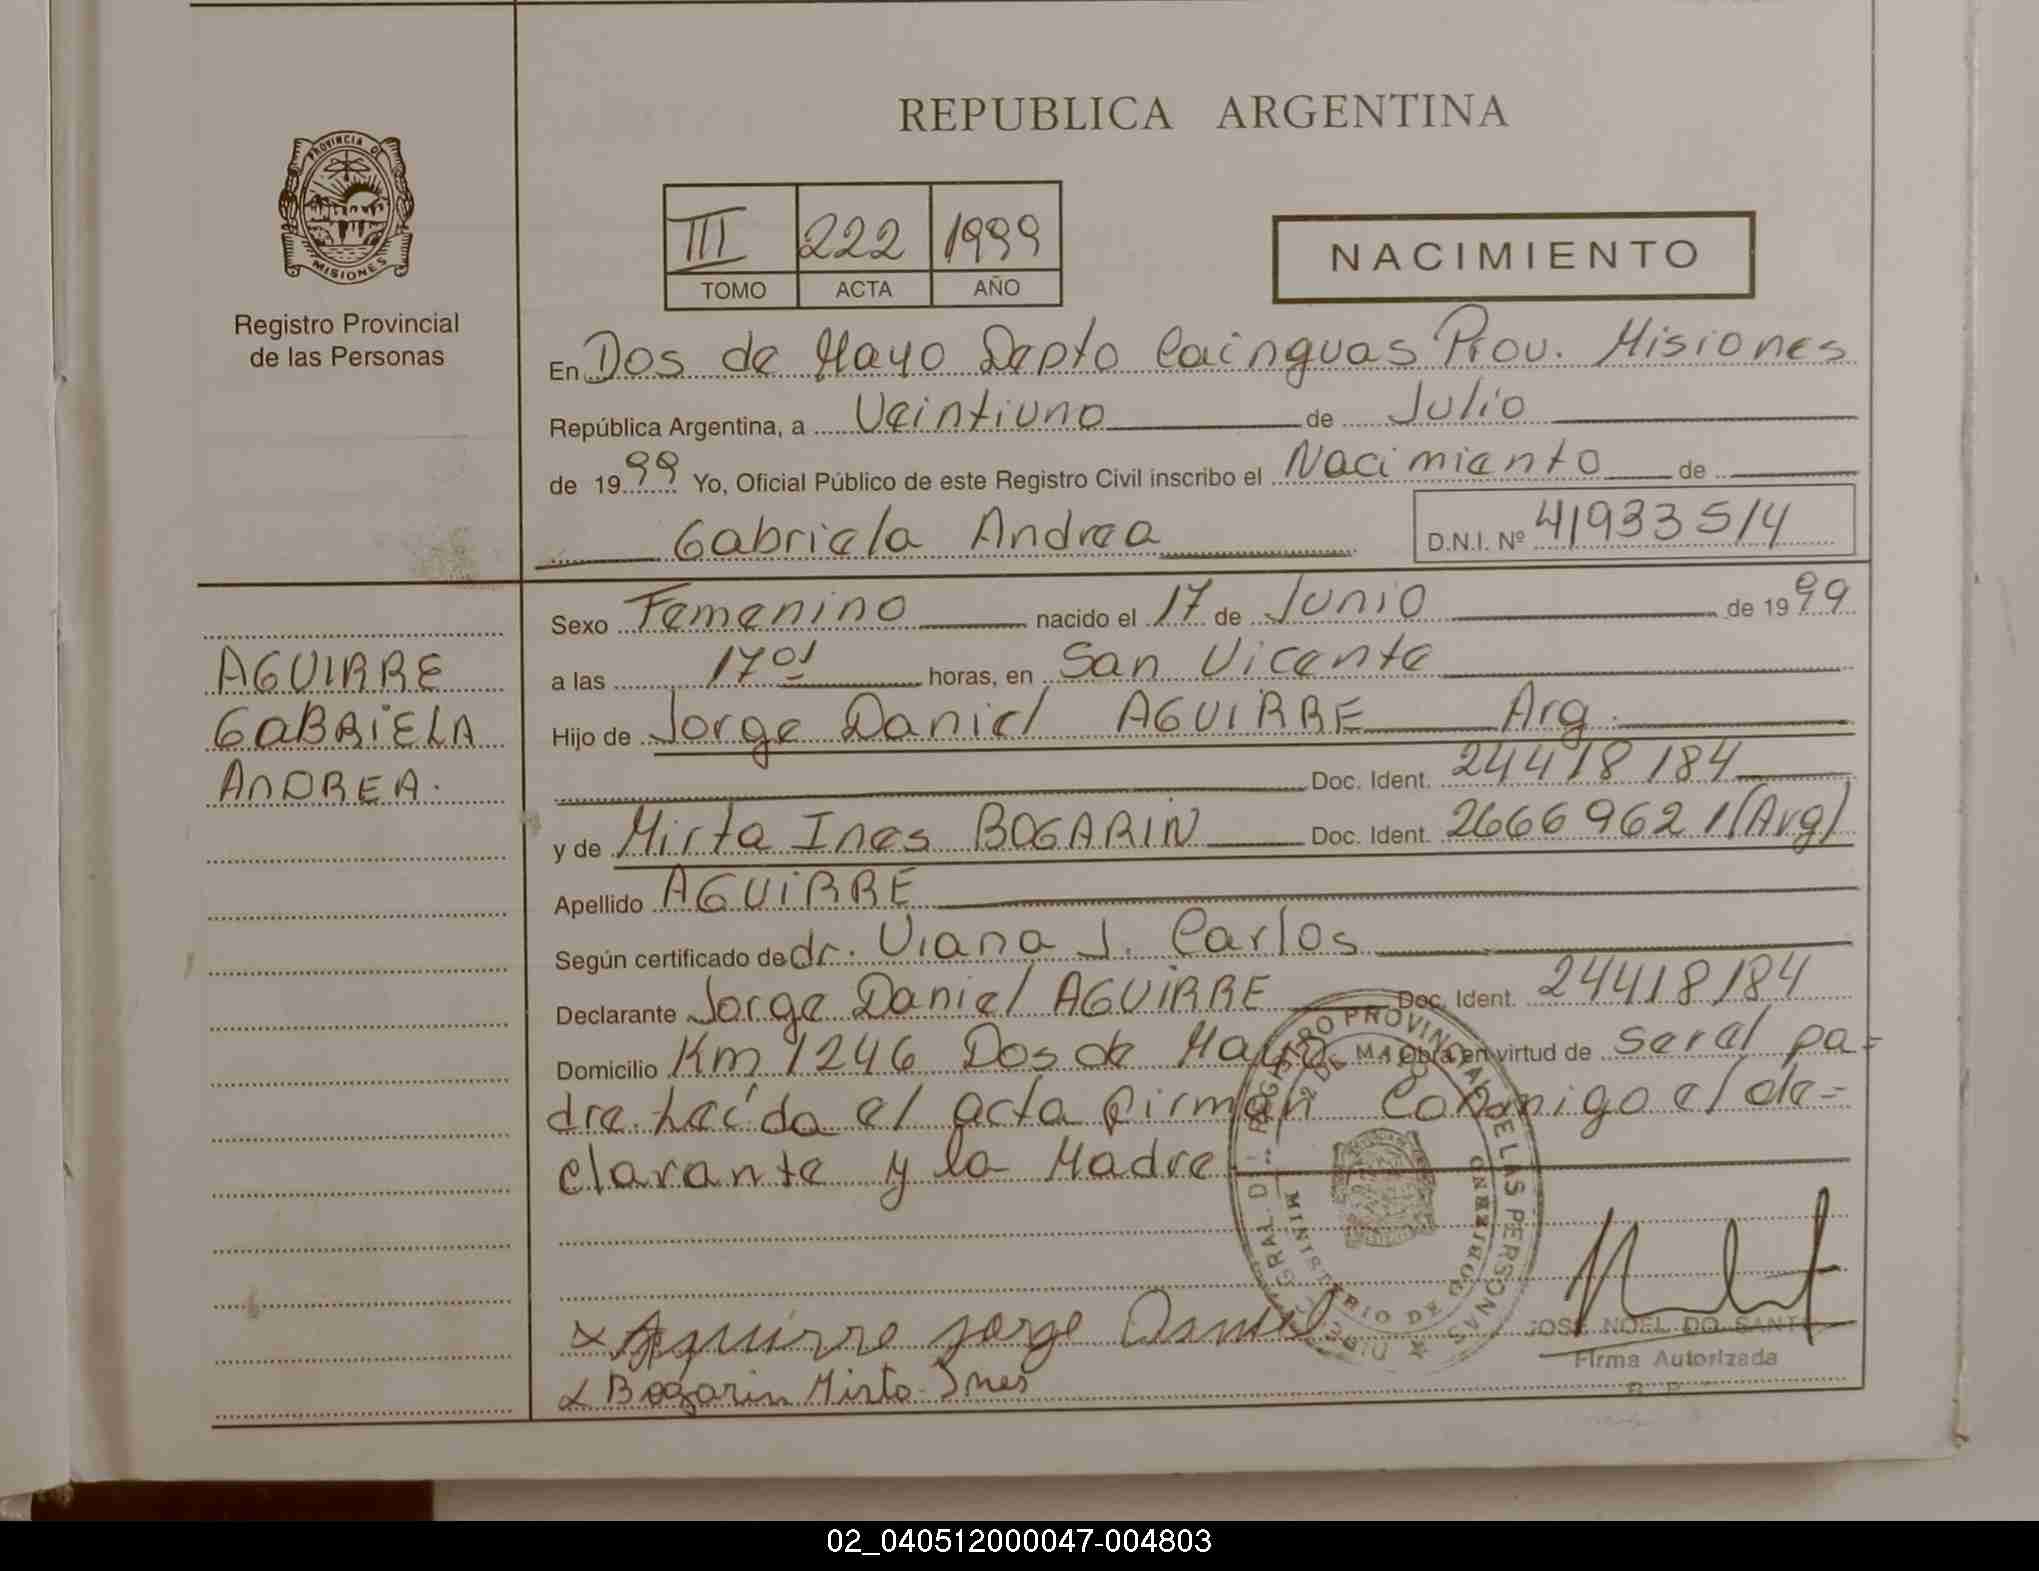 REPUBLICA ARGENTINA
PROVINCIA DE
MISIONES
Registro Provincial
de las Personas
III 222 1999
TOMO ACTA AÑO
NACIMIENTO
En Dos de Mayo Depto Cainguas Prov. Misiones
República Argentina, a Veintiuno de Julio
de 1999 Yo, Oficial Público de este Registro Civil inscribo el Nacimiento de
Gabriela Andrea D.N.I. Nº 41933514
Sexo Femenino nacido el 17 de Junio de 1999
a las 17 01 horas, en San Vicente
Hijo de Jorge Daniel AGUIRRE Arg.
Doc. Ident. 24418184
y de Mirta Ines BOGARIN Doc. Ident. 26669621 (Arg)
Apellido AGUIRRE
Según certificado de dr. Viana J. Carlos
Declarante Jorge Daniel AGUIRRE Doc. Ident. 24418184
Domicilio Km 1246 Dos de Mayo Obra en virtud de ser el pa=
dre. Leída el acta firman Conmigo el de=
clarante y la Madre
AGUIRRE
GABRIELA
ANDREA.
REGISTRO PROVINCIAL DE LAS PERSONAS
MINISTERIO DE GOBIERNO
x Aguirre Jorge Daniel
x Bogarin Mirta Ines
JOSE NOEL DO SANT
Firma Autorizada
02_040512000047-004803